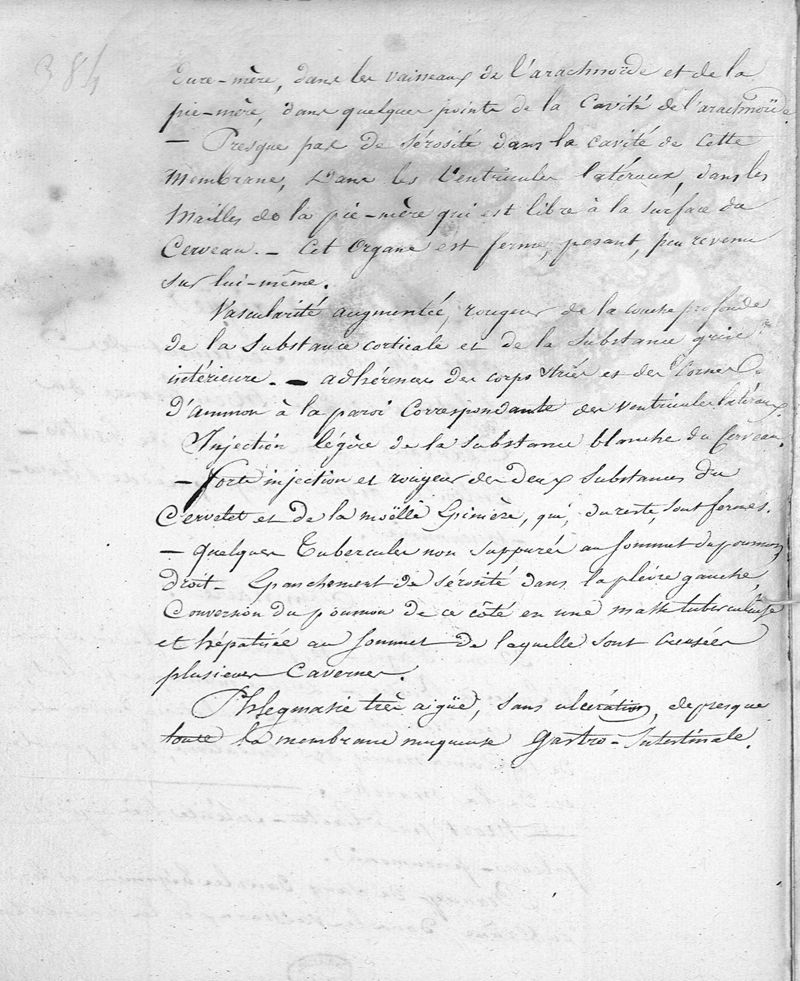 384
Dure-mère, dans les vaisseaux de l'arachnoïde et de la
pie-mère, dans quelques points de la Cavité de l'arachnoïde.
— Presque pas de sérosité dans la cavité de Cette
Membrane, Dans les Ventricules latéraux, dans les
Mailles de la pie-mère qui est libre à la surface du
Cerveau. — Cet Organe est ferme, pesant, peu revenu
sur lui-même.
Vascularité augmentée, rougeur de la couche profonde
de la Substance corticale et de la Substance grise
intérieure. — adhérences des corps striés et des Cornes
d'ammon à la paroi Correspondante des ventricules latéraux
Injection légère de la substance blanche du Cerveau.
— Forte injection et rougeur des deux Substances du
Cervelet et de la moëlle Épinière, qui, du reste, sont fermes.
— quelques Tubercules non suppurés au Sommet du poumon
droit — Épanchement de sérosité dans la plèvre gauche,
Conversion du poumon de ce côté en une masse tuberculeuse
et hépatisée au Sommet de laquelle sont creusées
plusieurs Cavernes.
Phlegmasie très aigüe, sans ulcération, de presque
toute la membrane muqueuse Gastro-Intestinale.